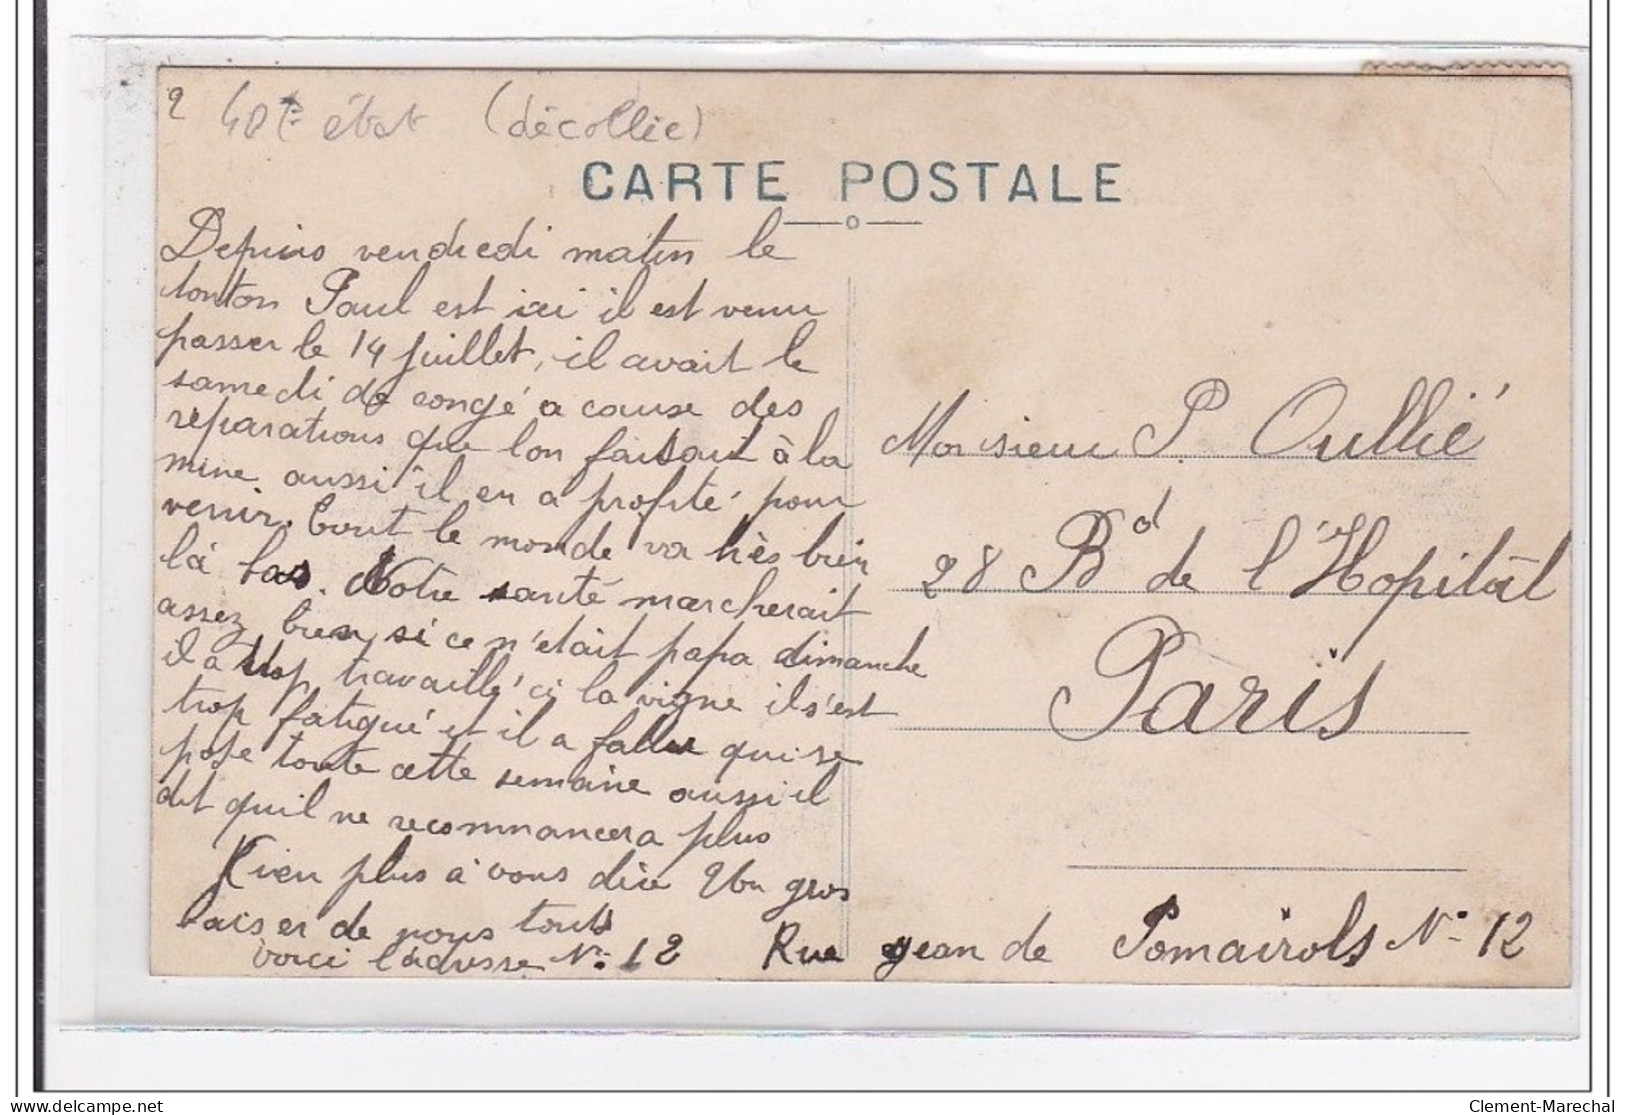 2
état (décollée)
CARTE POSTALE
Depuis vendredi matin le
tonton Paul est ici il est venu
passer le 14 juillet, il avait le
samedi de congé a cause des
réparations que lon faisait à la
mine aussi il en a profité pour
venir. Tout le monde va très bien
là bas. Notre santé marcherait
assez bien si ce n'etait papa dimanche
il a trop travaillé a la vigne il s'est
trop fatigué et il a fallu qui se
pose toute cette semaine aussi il
dit qu'il ne recommancera plus
Rien plus à vous dire Un gros
baiser de nous touts
voici l'adresse No: 12 Rue jean de Pomairols No: 12
Monsieur P. Oullié
28 Bd de l'Hopitâl
Paris
Clement-Marechal